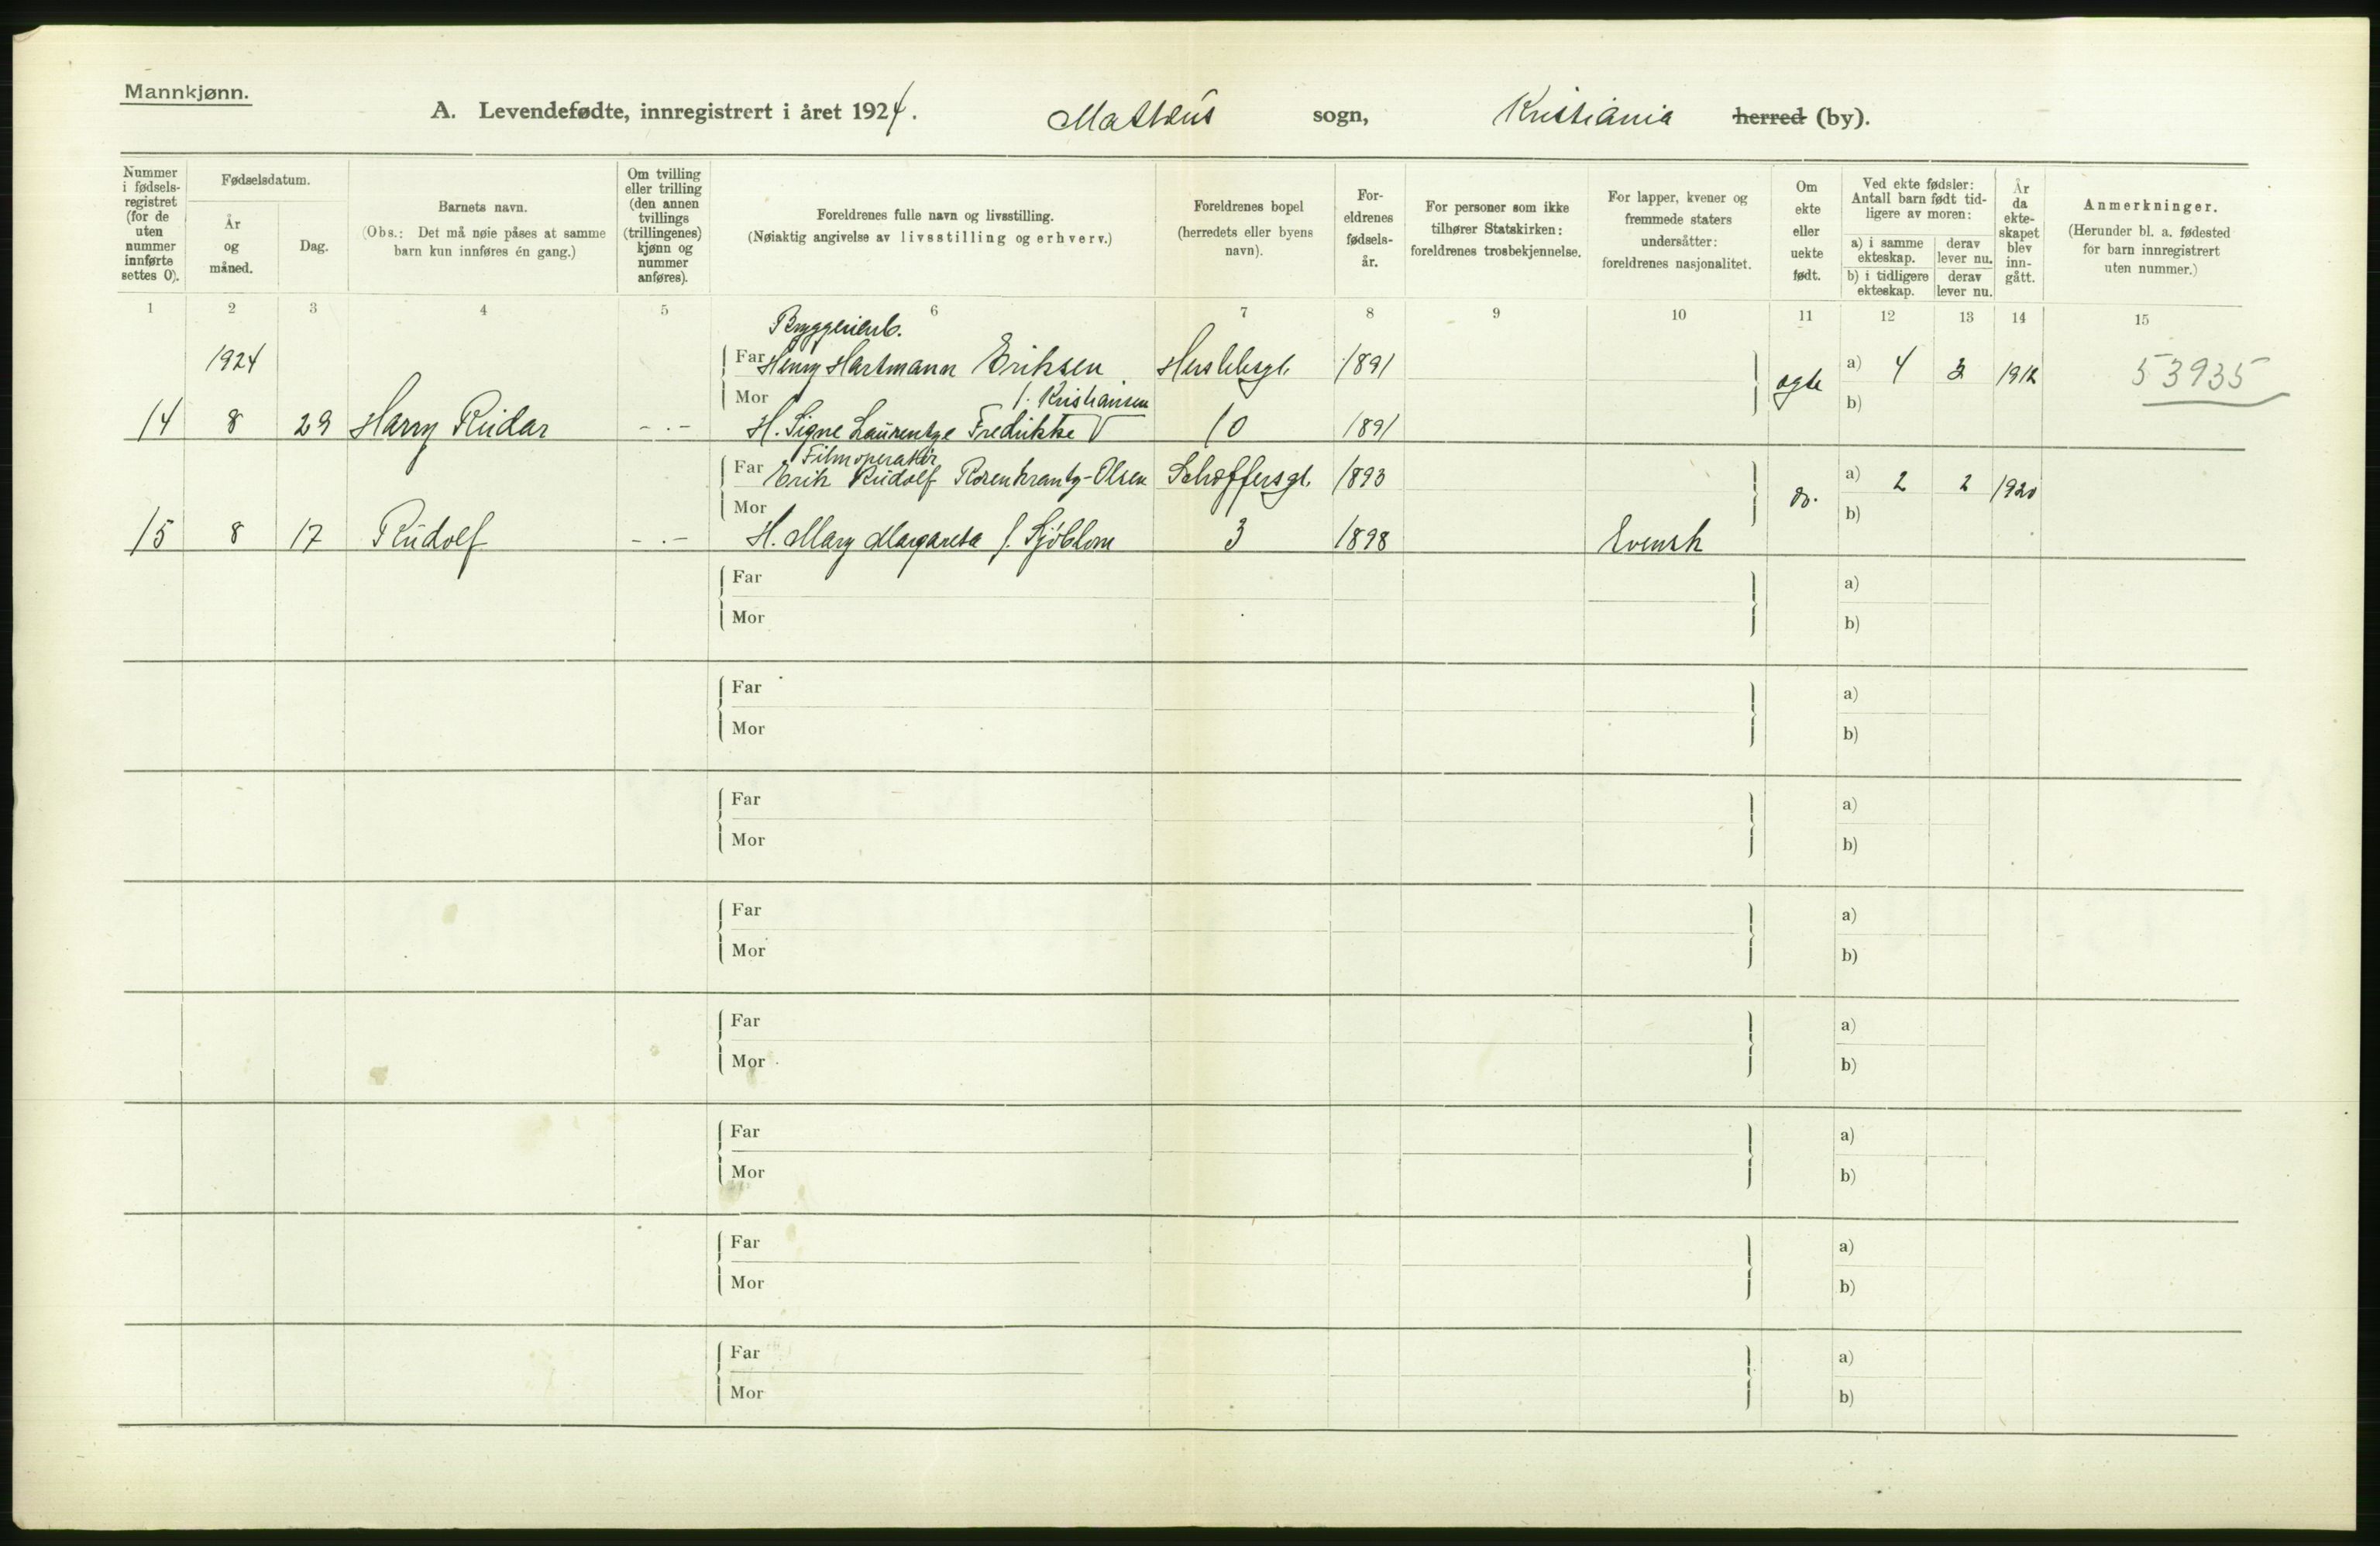 Mannkjønn.
A. Levendefødte, innregistrert i året 1924. Matheus sogn, Kristiania herred (by).
Nummer i fødsels-registret (for de uten nummer innførte settes 0).
Fødselsdatum.
År og måned.
Dag.
Barnets navn.
(Obs.: Det må nøie påses at samme barn kun innføres én gang.)
Om tvilling eller trilling (den annen tvillings (trillingenes) kjønn og nummer anføres).
Foreldrenes fulle navn og livsstilling.
(Nøiaktig angivelse av livsstilling og erhverv.)
Foreldrenes bopel (herredets eller byens navn).
For-eldrenes fødsels-år.
For personer som ikke tilhører Statskirken: foreldrenes trosbekjennelse.
For lapper, kvener og fremmede staters undersåtter: foreldrenes nasjonalitet.
Om ekte eller uekte født.
Ved ekte fødsler: Antall barn født tid-ligere av moren:
a) i samme ekteskap.
derav lever nu.
b) i tidligere ekteskap.
derav lever nu.
År da ekte-skapet blev inn-gått.
Anmerkninger.
(Herunder bl. a. fødested for barn innregistrert uten nummer.)
1 2 3 4 5 6 7 8 9 10 11 12 13 14 15
Bryggeriarb.
1924 Far Henry Hartmann Eriksen Herslebsgt. 1891 ægte a) 4 3 1912 53935
Mor f. Kristiansen b)
14 8 29 Harry Reidar - . - H. Signe Laurentze Fredrikke 10 1891
Filmoperatør
Far Erik Rudolf Rosenkrantz-Olsen Schæffersgt. 1893 do. a) 2 2 1920
Mor b)
15 8 17 Rudolf - . - H. Mary Margareta f. Sjöblom 3 1898 Svensk
Far a)
Mor b)
Far a)
Mor b)
Far a)
Mor b)
Far a)
Mor b)
Far a)
Mor b)
Far a)
Mor b)
Far a)
Mor b)
Far a)
Mor b)